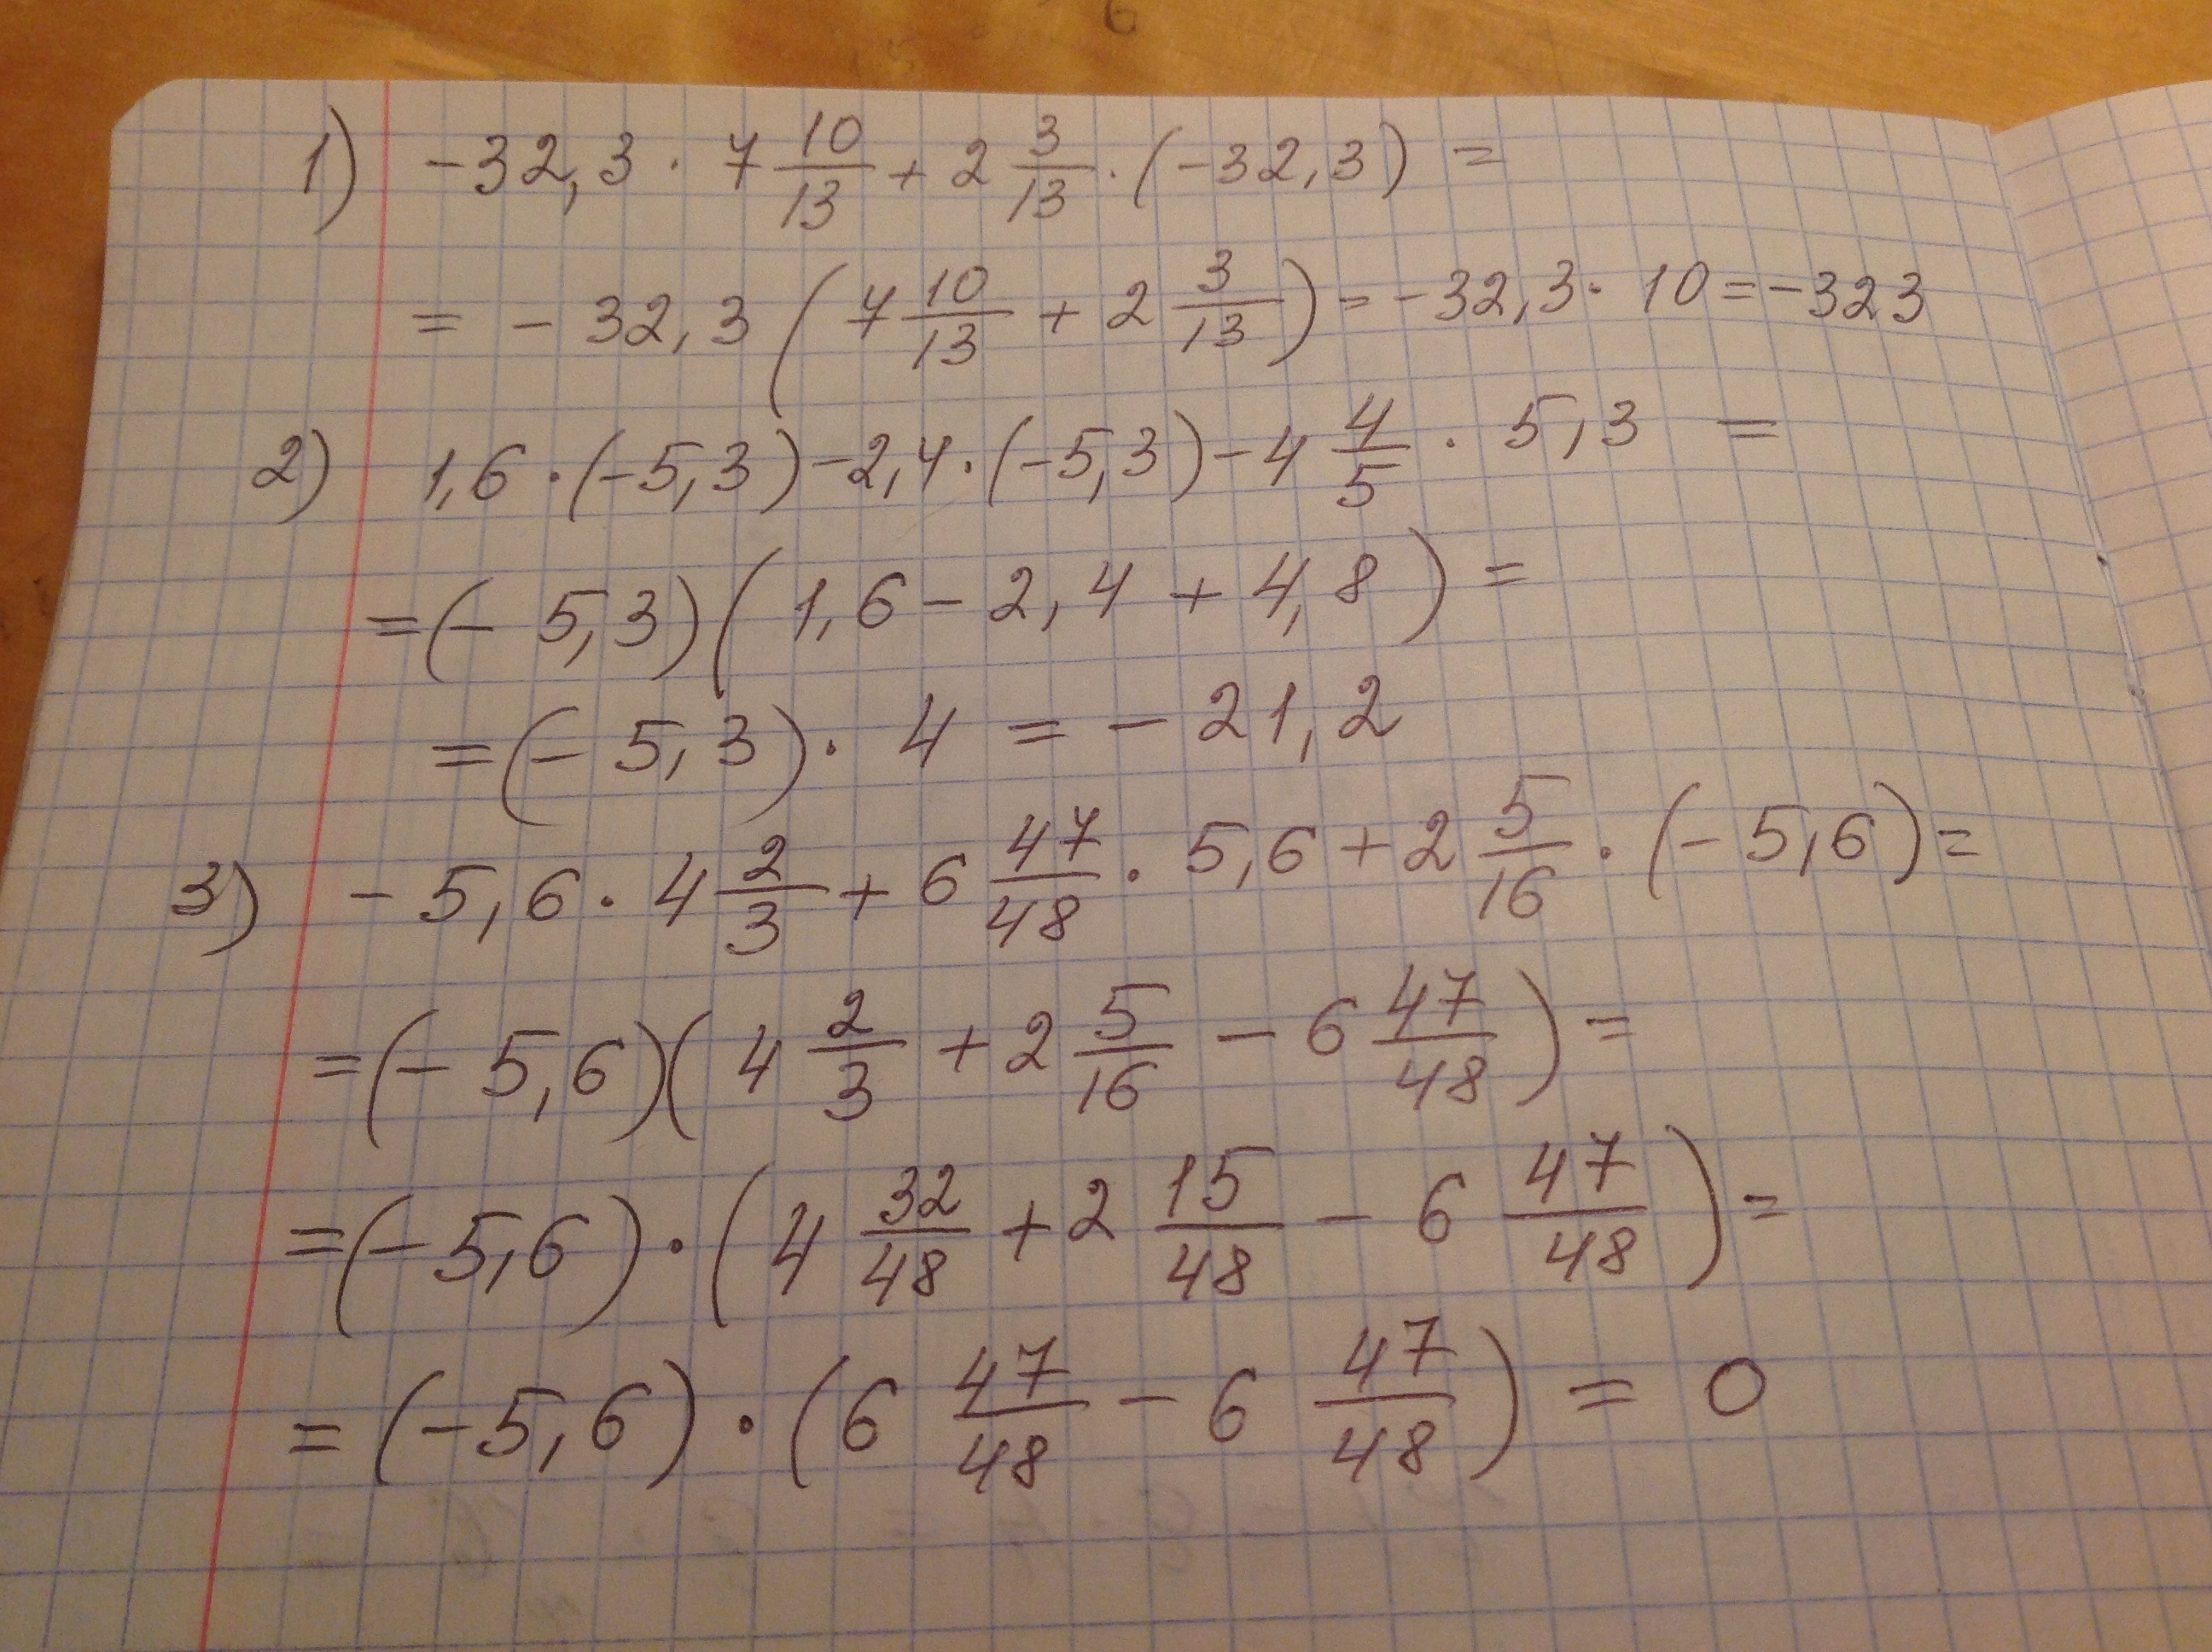 1) -32,3 · 7 10/13 + 2 3/13 · (-32,3) =
= - 32,3 (7 10/13 + 2 3/13) = -32,3 · 10 = -323
2) 1,6 · (-5,3) - 2,4 · (-5,3) - 4 4/5 · 5,3 =
= (- 5,3) (1,6 - 2,4 + 4,8) =
= (- 5,3) · 4 = - 21,2
3) - 5,6 · 4 2/3 + 6 47/48 · 5,6 + 2 5/16 · (- 5,6) =
= (- 5,6) (4 2/3 + 2 5/16 - 6 47/48) =
= (- 5,6) · (4 32/48 + 2 15/48 - 6 47/48) =
= (-5,6) · (6 47/48 - 6 47/48) = 0